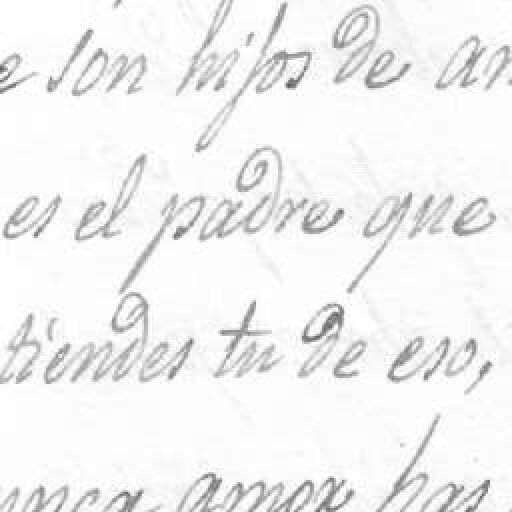 e son hijos de am
es el padre que
tiendes tu de eso,
unca amor has